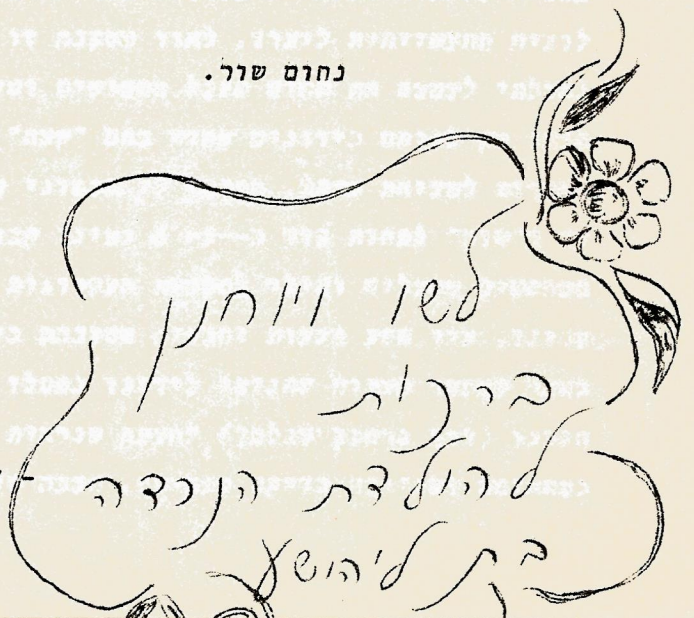 נחום שור.
לשו ויוחנן
ברכות
להולדת הנכדה
בת ליהושע